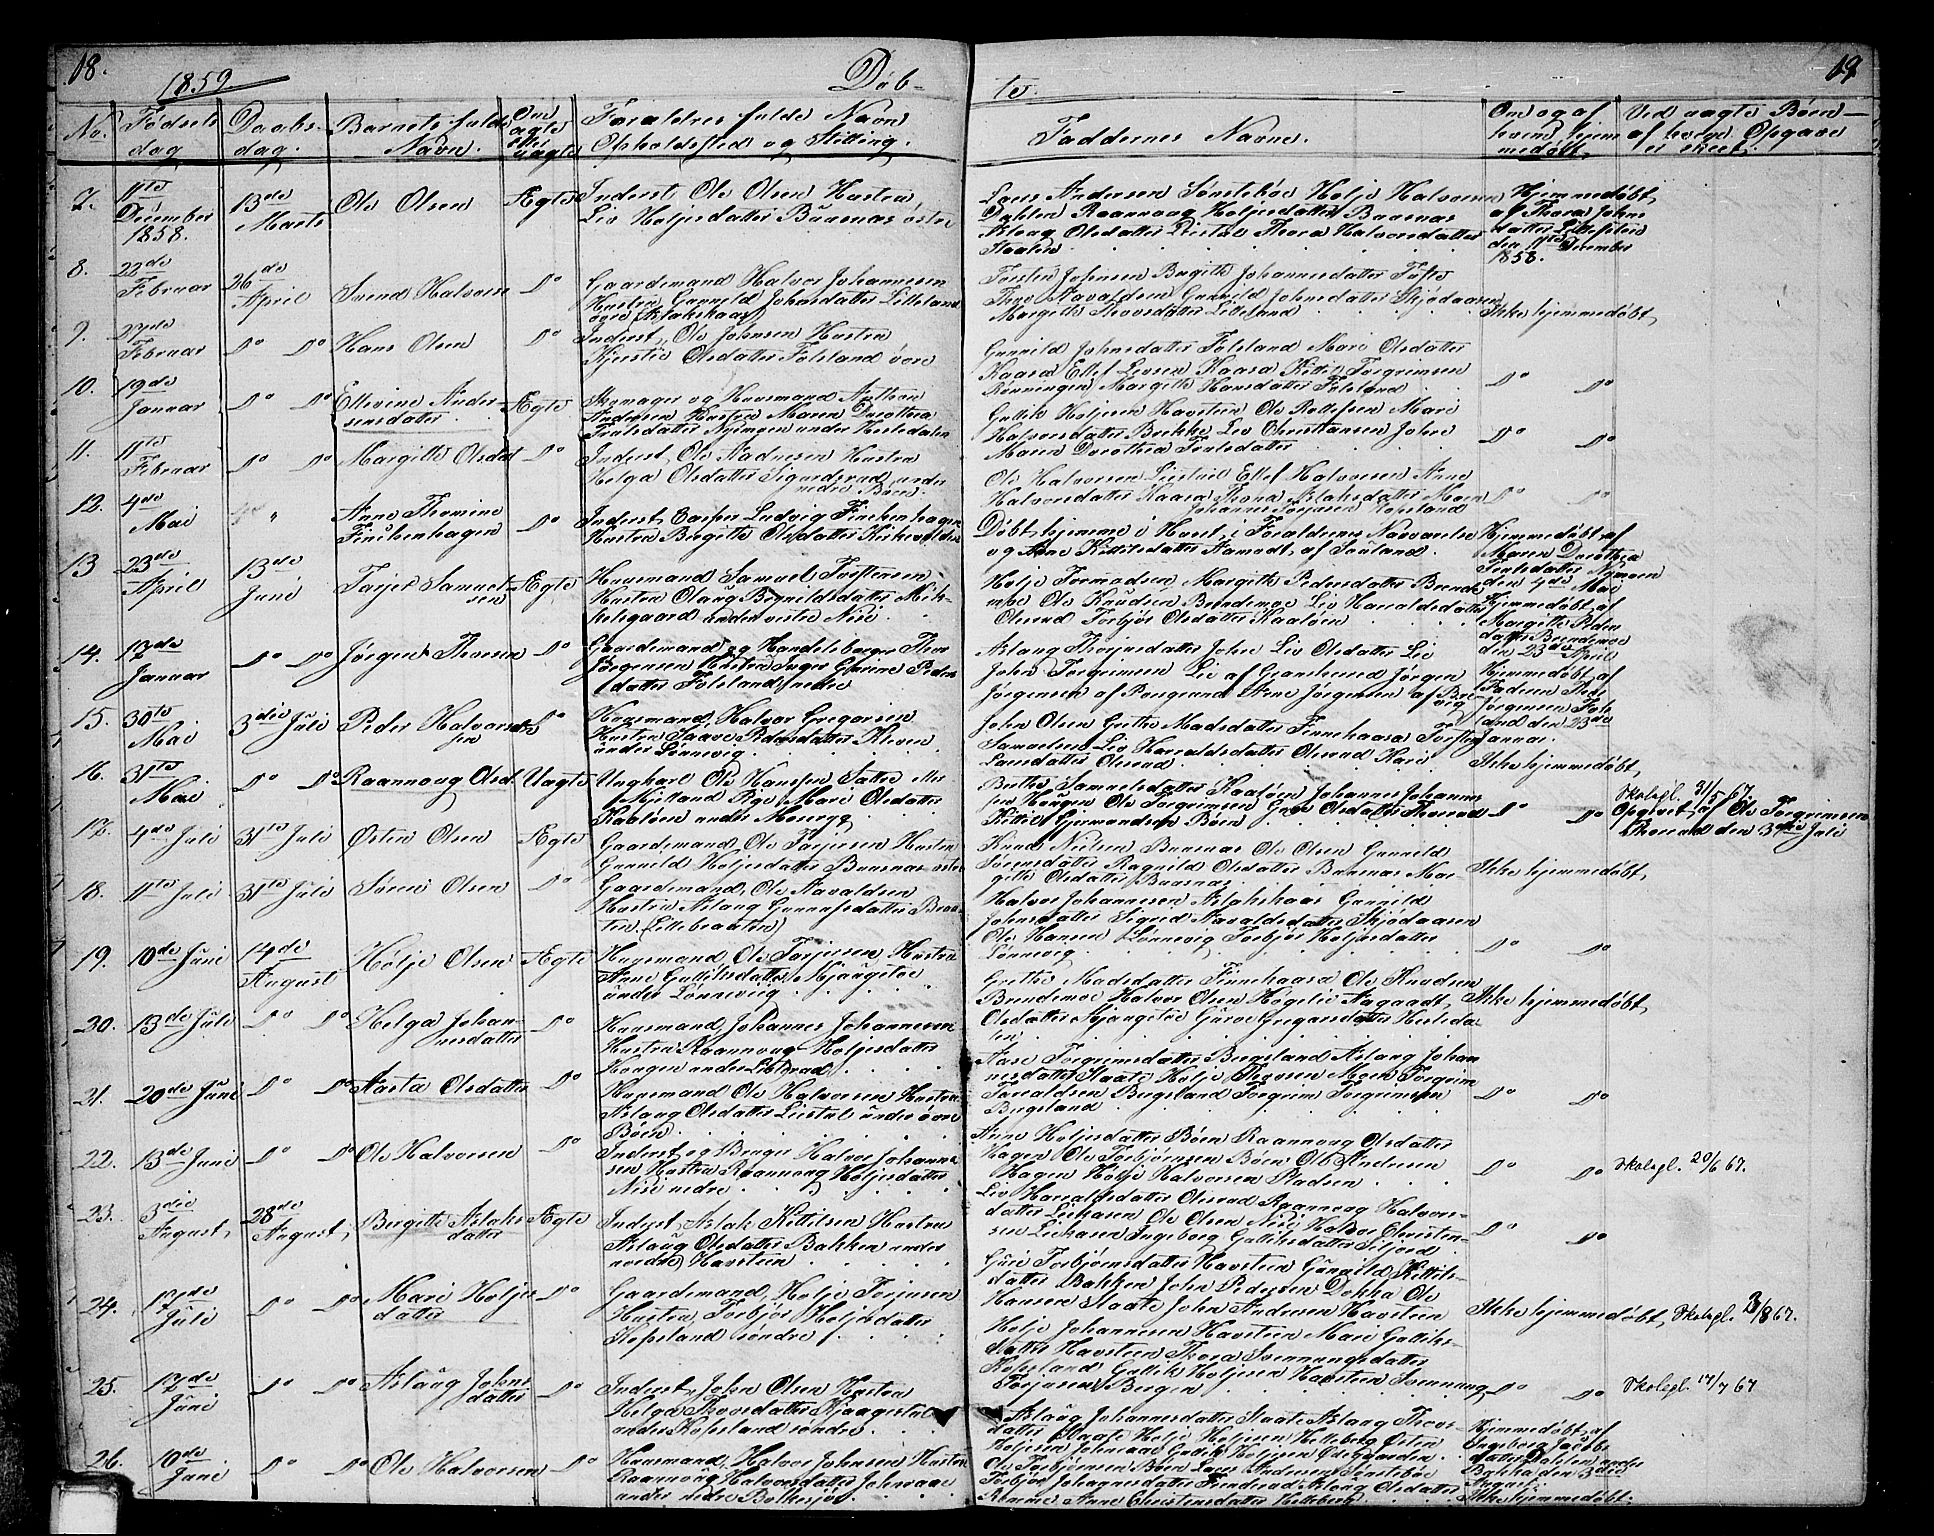 18.
1859.
Døb-
te.
19
No.
Fødsels
dag
Daabs-
dag.
Barnets fulde
Navn.
Om
ægte
eller
uægte
Forældres fulde Navn
Opholdsted og Stilling.
Faddernes Navne.
Om og af
hvem hjem
medøbt.
Ved uægte Børn
af hvilge Opgave
er skeet.
7.
11te
December
1858.
13de
Marts
Ole Olsen
Ægte
Inderst Ole Olsen Hustru
Liv Holjesdatter Buarnæs østre
Lars Andersen Sønstebøe Holje Halvorsen
Dahlen Raannaug Holjesdatter Buarnæs
Aslaug Olsdatter Liestøl Thora Halvorsdatter
Hjemmedøbt
af Thora Johns
datter
den 11te December
1858.
8.
22de
Februar
26de
April
Svend Halvorsen
Do
Gaardemand Halvor Johannesen
Hustru Gunnild Johansdatter Lilleland
øvre
Torsten Johnsen Birgitte Johannesdatter Tofte
Thor Aavaldsen Gunild Johnsdatter Skjødaasen
Margitte Thorsdatter Lilleland
Ikke hjemmedøbt
9.
27de
Februar
Do Do
Hans Olsen
Do
Inderst Ole Johnsen Hustru
Kjerstie Olsdatter Folseland øvre
Gunnild Johnsdatter Folseland Mari Olsdatter
Kaasa Ellef Levsen Kaasa Kittil Torgrimsen
Rønningen Margitte Hansdatter Folseland
Do Do
10.
19de
Januar
Do Do
Ellevine Ander-
sensdatter
Ægte
Skomager og Huusmand Anthon
Andersen Hustru Maren Dorothea
Troelsdatter Nymoen under Hesledalen
Gullik Holjesen Havsteen Ole Rollefsen Mari
Halvorsdatter Brekke Liv Christiansen John
Maren Dorothea Troelsdatter
Do Do
11.
11te
Februar
Do Do
Margitte Olsdat
Do
Inderst Ole Aadnesen Hustru
Helga Olsdatter Sigurdsrud under
nedre Bøen.
Ole Halvorsen Liestøl Ellef Halvorsen Anne
Halvorsdatter Kaasa Thora Aslaksdatter Moen
Johannes Torjusen Kopsland
Do Do
12.
4de
Mai
Anne Thomine
Finchenhagen
Do
Inderst Casper Ludvig Finchenhagen
Hustru Birgitte Olsdatter Kirkevolden
Døbt hjemme i Huset i Forældrenes Nærværelse
og Anne Kittilsdatter Kamodt af Sauland.
Hjemmedøbt af
Maren Dorothea
Troelsdatter Nymoen
den 4de Mai
13
23de
April
13de
Juni
Tarjer Samuel-
sen
Ægte
Huusmand Samuel Torstensen
Hustru Olaug Brynildsdatter Mik-
kelsgaard under vestre Nisi
Holje Tormodsen Margitte Pedersdatter Brende
moe Ole Knudsen Brendemoe Liv Haraldsdatter
Olsrud Torbjør Olsdatter Kaaløen
Hjemmedøbt af
Margitte Peders
datter Brendemoe
den 23de April
14.
17de
Januar
Do Do
Jørgen Thorsen
Do
Gaardemand og Handelsborger Thor
Jørgensen Hustru Inger Gurine Peders
datter Folseland nedre
Aslaug Thorjusdatter John Liv Olsdatter Liv
John Torgrimsen Liv af Gransherred Jørgen
Jørgensen af Rougrand Arne Jørgensen af Bre
vig
Hjemmedøbt af
Faderen Thor
Jørgensen Fols
land den 23de
Januar.
15.
30te
Mai
3die Juli
Peder Halvorsen
sen
Do
Huusmand Halvor Gregorsen
Hustru Saave Pedersdatter Kleven
under Lønnevig.
John Olsen Grethe Madsdatter Finnekaasa Torsten
Samuelsen Liv Haraldsdatter Olsrud Kari
Larsdatter Olsrud.
Ikke hjemmedøbt
16.
31te
Mai
Do Do
Raannoug Olsd.
Uægte
Ungkarl Ole Hansen Sætre
Kjilland Pige Mari Olsdatter
Kaaløen under Moen
Berthe Samuelsdatter Kaaløen Johannes Johannes
sen Haugen Ole Torgrimsen Gro Olsdatter Thorrud
Kittil Germundsen Bøen
Do Do
Skolegl. 31/5 67.
Opgivet af Ole Torgrimsen
Thorrud den 3die Juli
17.
4de Juli
31te Juli
Østen Olsen
Ægte
Gaardemand Ole Torjusen Hustru
Gunnild Holjesdatter Buarnæs østre
Knud Nielsen Buarnæs Ole Olsen Gunnild
Sørensdatter Ragnild Olsdatter Buarnæs Mar-
gitte Olsdatter Buarnæs
Ikke hjemmedøbt
18.
11te Juli
31te Juli
Søren Olsen
Do
Gaardemand Ole Aavaldsen
Hustru Aslaug Gunnulfsdatter Braa-
ten (Lillebraaten)
Halvor Johannesen Aslakskaas Gunnild
Johnsdatter Sigrid Aavaldsdatter Skjødaasen
Ole Hansen Lønnevig Torbjør Holjesdatter
Lønnevig
Do Do
19.
10de Juni
14de
August
Holje Olsen
Ægte
Huusmand Ole Torjusen Hustru
Anne Gulliksdatter Kjaagetøe
under Lønneviig
Grethe Madsdatter Finnekaasa Ole Knudsen
Brendemoe Halvor Olsen Høgelie Aagaadt
Olsdatter Kjaagetøe Guroe Gregarsdatter Hesleda-
len
Ikke hjemmedøbt
20.
13de Juli
Do Do
Helga Johan-
nesdatter
Do
Huusmand Johannes Johannesen
Hustru Raannoug Holjesdatter
Haugen under Lilsrud
Aase Torgrimsdatter Bergsland Aslaug Johan
nesdatter Staate Holje Thorsen Moen Torgrim
Toraldsen Bugeland Torgrim Torgrimsen
Bugsland
Do Do
21.
20de Juni
Do Do
Aasta Olsdatter
Do
Huusmand Ole Halvorsen Hustru
Aslaug Olsdatter Liestøl under øvre
Bøen.
Anne Holjesdatter Bøen Raannoug Olsdatter
Hagen Ole Torbjørnsen Bøen Ole Andresen
Hagen Holje Halvorsen Stadsen
22.
13de Juni
Do Do
Ole Halvorsen
Do
Inderst og Bruger Halvor Johanne-
sen Hustru Raannoug Holjesdatter
Nisi nedre
Liv Haraldsdatter Olsrud Raannoug Halvors-
datter Liekasen Ole Olsen Nisi Halvor Christen-
sen Liekasen Ingeborg Gulliksdatter Siljord
Do Do
Skolegl. 20/6 67.
23.
3die
August,
28de
August,
Bergitte Aslaks
datter
Ægte
Inderst Aslak Kittilsen Hustru
Aslaug Olsdatter Bakken under
nordre Havsteen
Guri Torbjørnsdatter Havsteen Gunild Kittils-
datter Bakken John Pedersen Dokka Ole
Hansen Staate John Andersen Havsteen
Do Do
24.
17de
Juli
Do Do
Mari Holjes
datter
Do
Gaardemand Holje Torjusen
Hustru Torbjør Holjesdatter
Kopsland søndre
Holje Johannesen Havsteen Mari Gulliks-
datter Havsteen Thora Svennungsdatter
Kopsland Gullik Holjesen Havsteen Svennung
Torjusen Bergen
Ikke hjemmedøbt,
Skolegl. 3/8 67.
25.
17de
Juni
Do Do
Aslaug Johns
datter
Do
Inderst John Olsen Hustru
Helga Thorsdatter Kjaagestul
under Kopsland søndre
Aslaug Johannesdatter Staate Aslaug Thors
datter Staate Holje Holjesen Helleberg Østen
Holjesen Johnsaas Gullik Holjesen Øvregaarden
Do Do
Skolegl. 17/7 67
Hjemmedøbt af
Ingeborg Jacobs
datter Dahlen under
Bakka den 3die
August.
26.
10de
Juni
Do Do
Ole Halvorsen
Do
Huusmand Halvor Johnsen Hustru
Raannoug Halvorsdatter Johnsaas
under nedre Bolkesjø.
Ole Torbjørnsen Bøen Lars Andersen Sønstebøe
Torbjør Johannesdatter Tinderud Aslaug Olsdatter
Romme Anne Christensdatter Helleberg
Ikke hjemmedøbt.